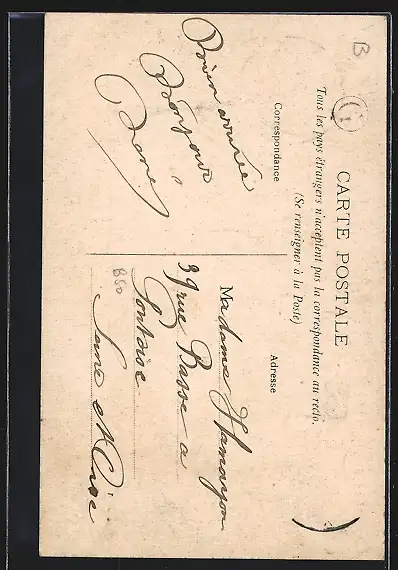 CARTE POSTALE
Tous les pays étrangers n'acceptent pas la correspondance au recto.
(Se renseigner à la Poste)
Correspondance
Adresse
B
G
Bien arrivée
Bonjour
Madame
39 rue Basse a
Pontoise
Seine et Oise
B50